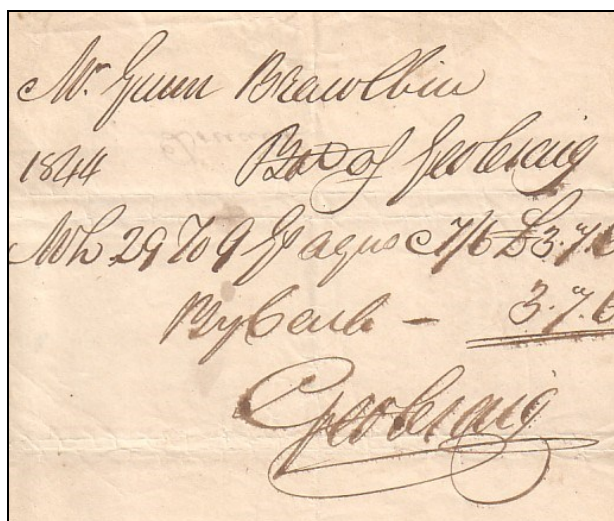 Mr Gunn Brawlbin
1844 Bot of Geo Craig
Mch 29 To 9 aqua @ 7/6 £3.7.6
By Cash – 3.7.6
Geo Craig